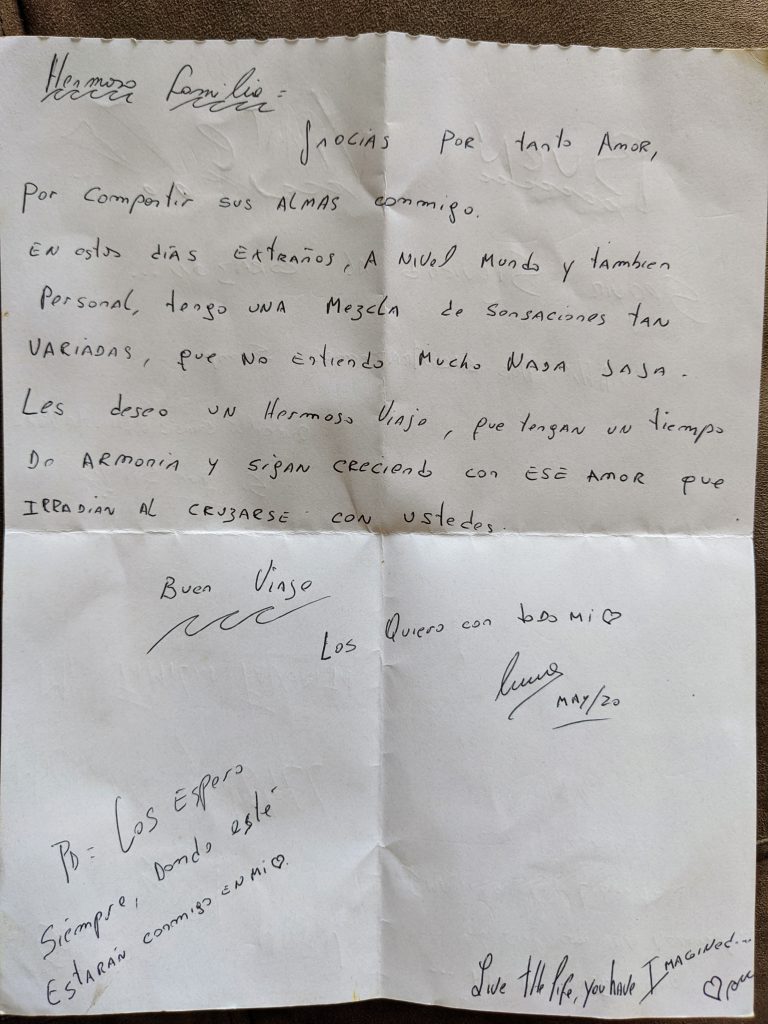 Hermosa Familia =
Gracias por tanto Amor,
Por compartir sus ALMAS conmigo.
EN estos díAS EXTRAÑOS, A Nivel Mundo y tambien
Personal, tengo UNA Mezcla de Sensaciones TAN
VARIADAS, que NO Entiendo Mucho NADA JAJA.
Les deseo UN Hermoso Viaje, que tengan UN tiempo
De ARMONIA y sigan CRECiendo con ESE AMOR que
IRRADIAN AL CRUZARSE CON Ustedes.
Buen Viaje
Los Quiero con todo Mi ♡
MAY/20
PD = Los Espero
Siempre, Donde esté
EstARÁN conmigo EN Mi ♡.
Live the life, you have IMAGINED...
♡